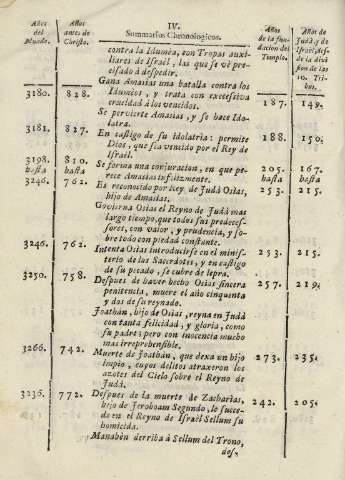 Años del Mundo. Años antes de Christo. IV. Summarios Chronologicos. Años de la fundacion del Templo. Años de Judà, y de Israèl, desde la division de las 10. Tribus.
contra la Idumèa, con Tropas auxi-
liares de Israèl, las que se vè pre-
cisado à despedir.
3180. 828. Gana Amasias una batalla contra los 187. 149.
Idumèos, y trata con excessiva
crueldad à los vencidos.
Se pervierte Amasias, y se hace Ido-
latra.
3181. 827. En castigo de su idolatria: permite 188. 150.
Dios, que sea vencido por el Rey de
Israèl.
3198. 810. Se forma una conjuracion, en que pe- 205. 167.
hasta hasta rece Amasias infelizmente. hasta hasta
3246. 762. Es reconocido por Rey de Judà Osias, 253. 215.
hijo de Amasias.
Govierna Osias el Reyno de Judà mas
largo tiempo, que todos sus predeces-
sores, con valor, y prudencia, y so-
bre todo con piedad constante.
3246. 762. Intenta Osias introducirse en el minis- 253. 215.
terio de los Sacerdotes, y en castigo
de su pecado, se cubre de lepra.
3250. 758. Despues de haver hecho Osias sincera 257. 219.
penitencia, muere el año cinquenta
y dos de su reynado.
Joathàn, hijo de Osias, reyna en Judà
con tanta felicidad, y gloria, como
su padre; pero con inocencia mucho
mas irreprehensible.
3266. 742. Muerte de Joathàn, que dexa un hijo 273. 235.
impio, cuyos delitos atraxeron los
azotes del Cielo sobre el Reyno de
Judà.
3236. 772. Despues de la muerte de Zacharìas, 242. 205.
hijo de Jeroboam Segundo, le succe-
de en el Reyno de Israèl Sellum su
homicida.
Manahèn derriba à Sellum del Trono,
des-